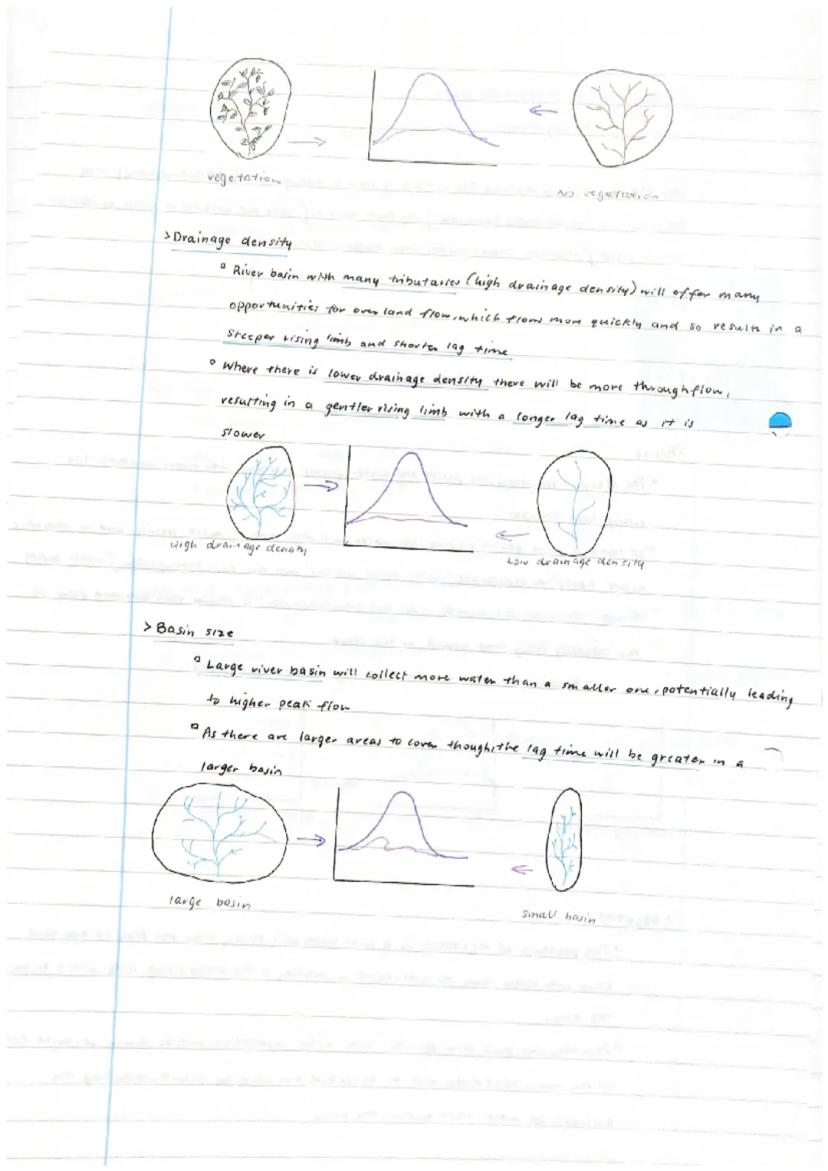 vegetation
No vegetation
>Drainage density
▫ River basin with many tributaries (high drainage density) will offer many
opportunities for overland flow, which flows more quickly and so results in a
steeper rising limb and shorter lag time
▫ Where there is lower drainage density there will be more throughflow,
resulting in a gentler rising limb with a longer lag time as it is
slower
High drainage density
Low drainage density
> Basin size
▫ Large river basin will collect more water than a smaller one, potentially leading
to higher peak flow
▫ As there are larger areas to cover though, the lag time will be greater in a
larger basin
large basin
small basin